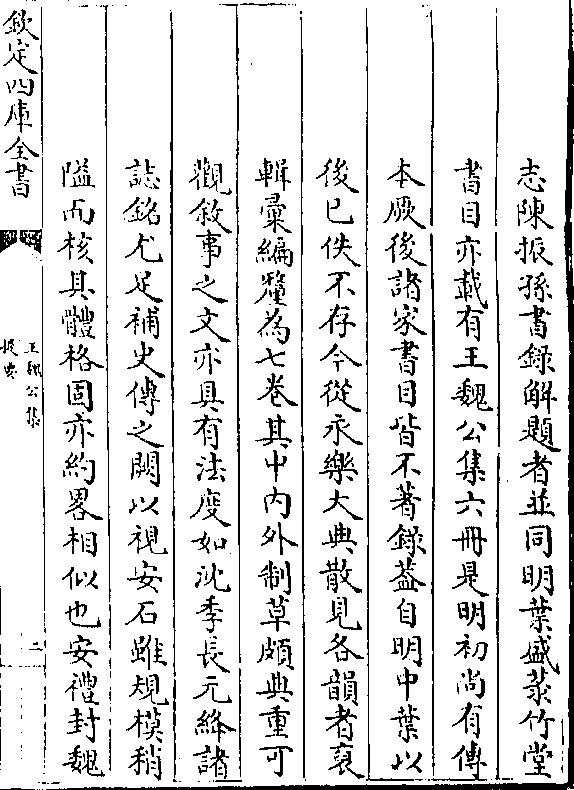 志陳振孫書錄解題者並同明葉盛菉竹堂
書目亦載有王魏公集六冊是明初尚有傳
本厥後諸家書目皆不著錄葢自明中葉以
後已佚不存今從永樂大典散見各韻者裒
輯彙編釐為七卷其中內外制草頗典重可
觀敘事之文亦具有法度如沈季長元絳諸
誌銘尤足補史傳之闕以視安石雖規模稍
隘而核其體格固亦約畧相似也安禮封魏
欽定四庫全書
王魏公集
提要
二